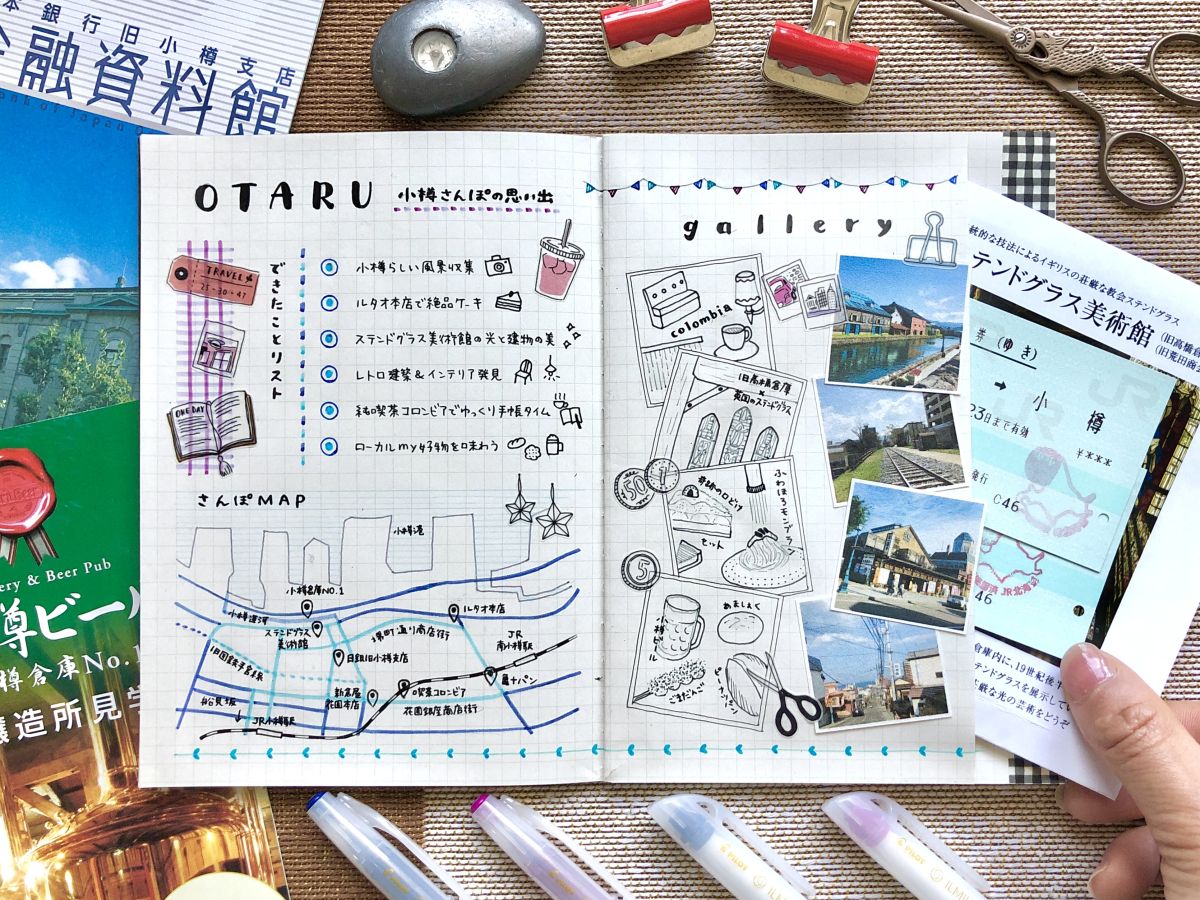 本銀行旧小樽支店
金融資料館
Bank of Japan O
ery & Beer Pub
樽ビール
樽倉庫No.1
醸造所見学
OTARU
小樽さんぽの思い出
できたことリスト
TRAVEL
25-30-47
ONE DAY
小樽らしい風景収集
ルタオ本店で絶品ケーキ
ステンドグラス美術館の光と建物の美
レトロ建築&インテリア発見
純喫茶コロンビアでゆっくり手帳タイム
ローカルmy好物を味わう
さんぽMAP
小樽港
小樽倉庫NO.1
小樽運河
ルタオ本店
ステンドグラス
美術館
堺町通り商店街
JR
南小樽駅
旧国鉄手宮線
日銀旧小樽支店
亀十パン
新倉屋
花園本店
喫茶コロンビア
花園銀座商店街
船見坂
JR小樽駅
gallery
colombia
旧高橋倉庫
×
英国のステンドグラス
50
1
5
奇跡の口どけ
セット
ふわほろモンブラン
小樽ビール
あましょく
ごまだんご
ピーナッツパン
統的な技法によるイギリスの荘厳な教会ステンドグラス
テンドグラス美術館
(旧高橋倉
(旧荒田商会
券(ゆき)
→ 小樽
23日まで有効
¥***
発行
C46
46
JR北海道
倉庫内に、19世紀後半
テンドグラスを展示してい
荘厳な光の芸術をどうぞ
PILOT
PILOT
PILOT ILMILY
PILOT ILMI